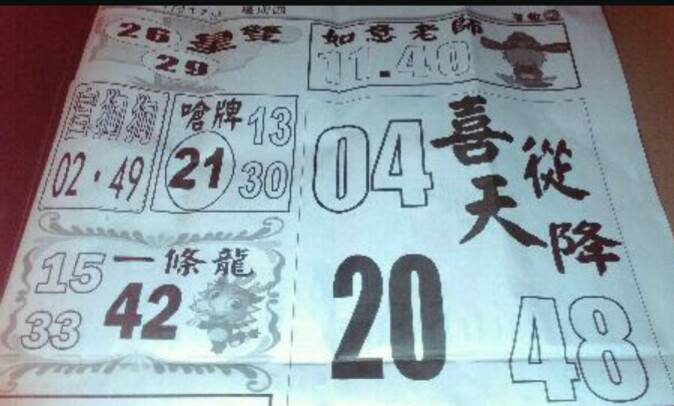 26
29
如意老師
11.40
02·49
嗆牌
13
21
30
04
喜從
天降
15
一條龍
42
33
20
48